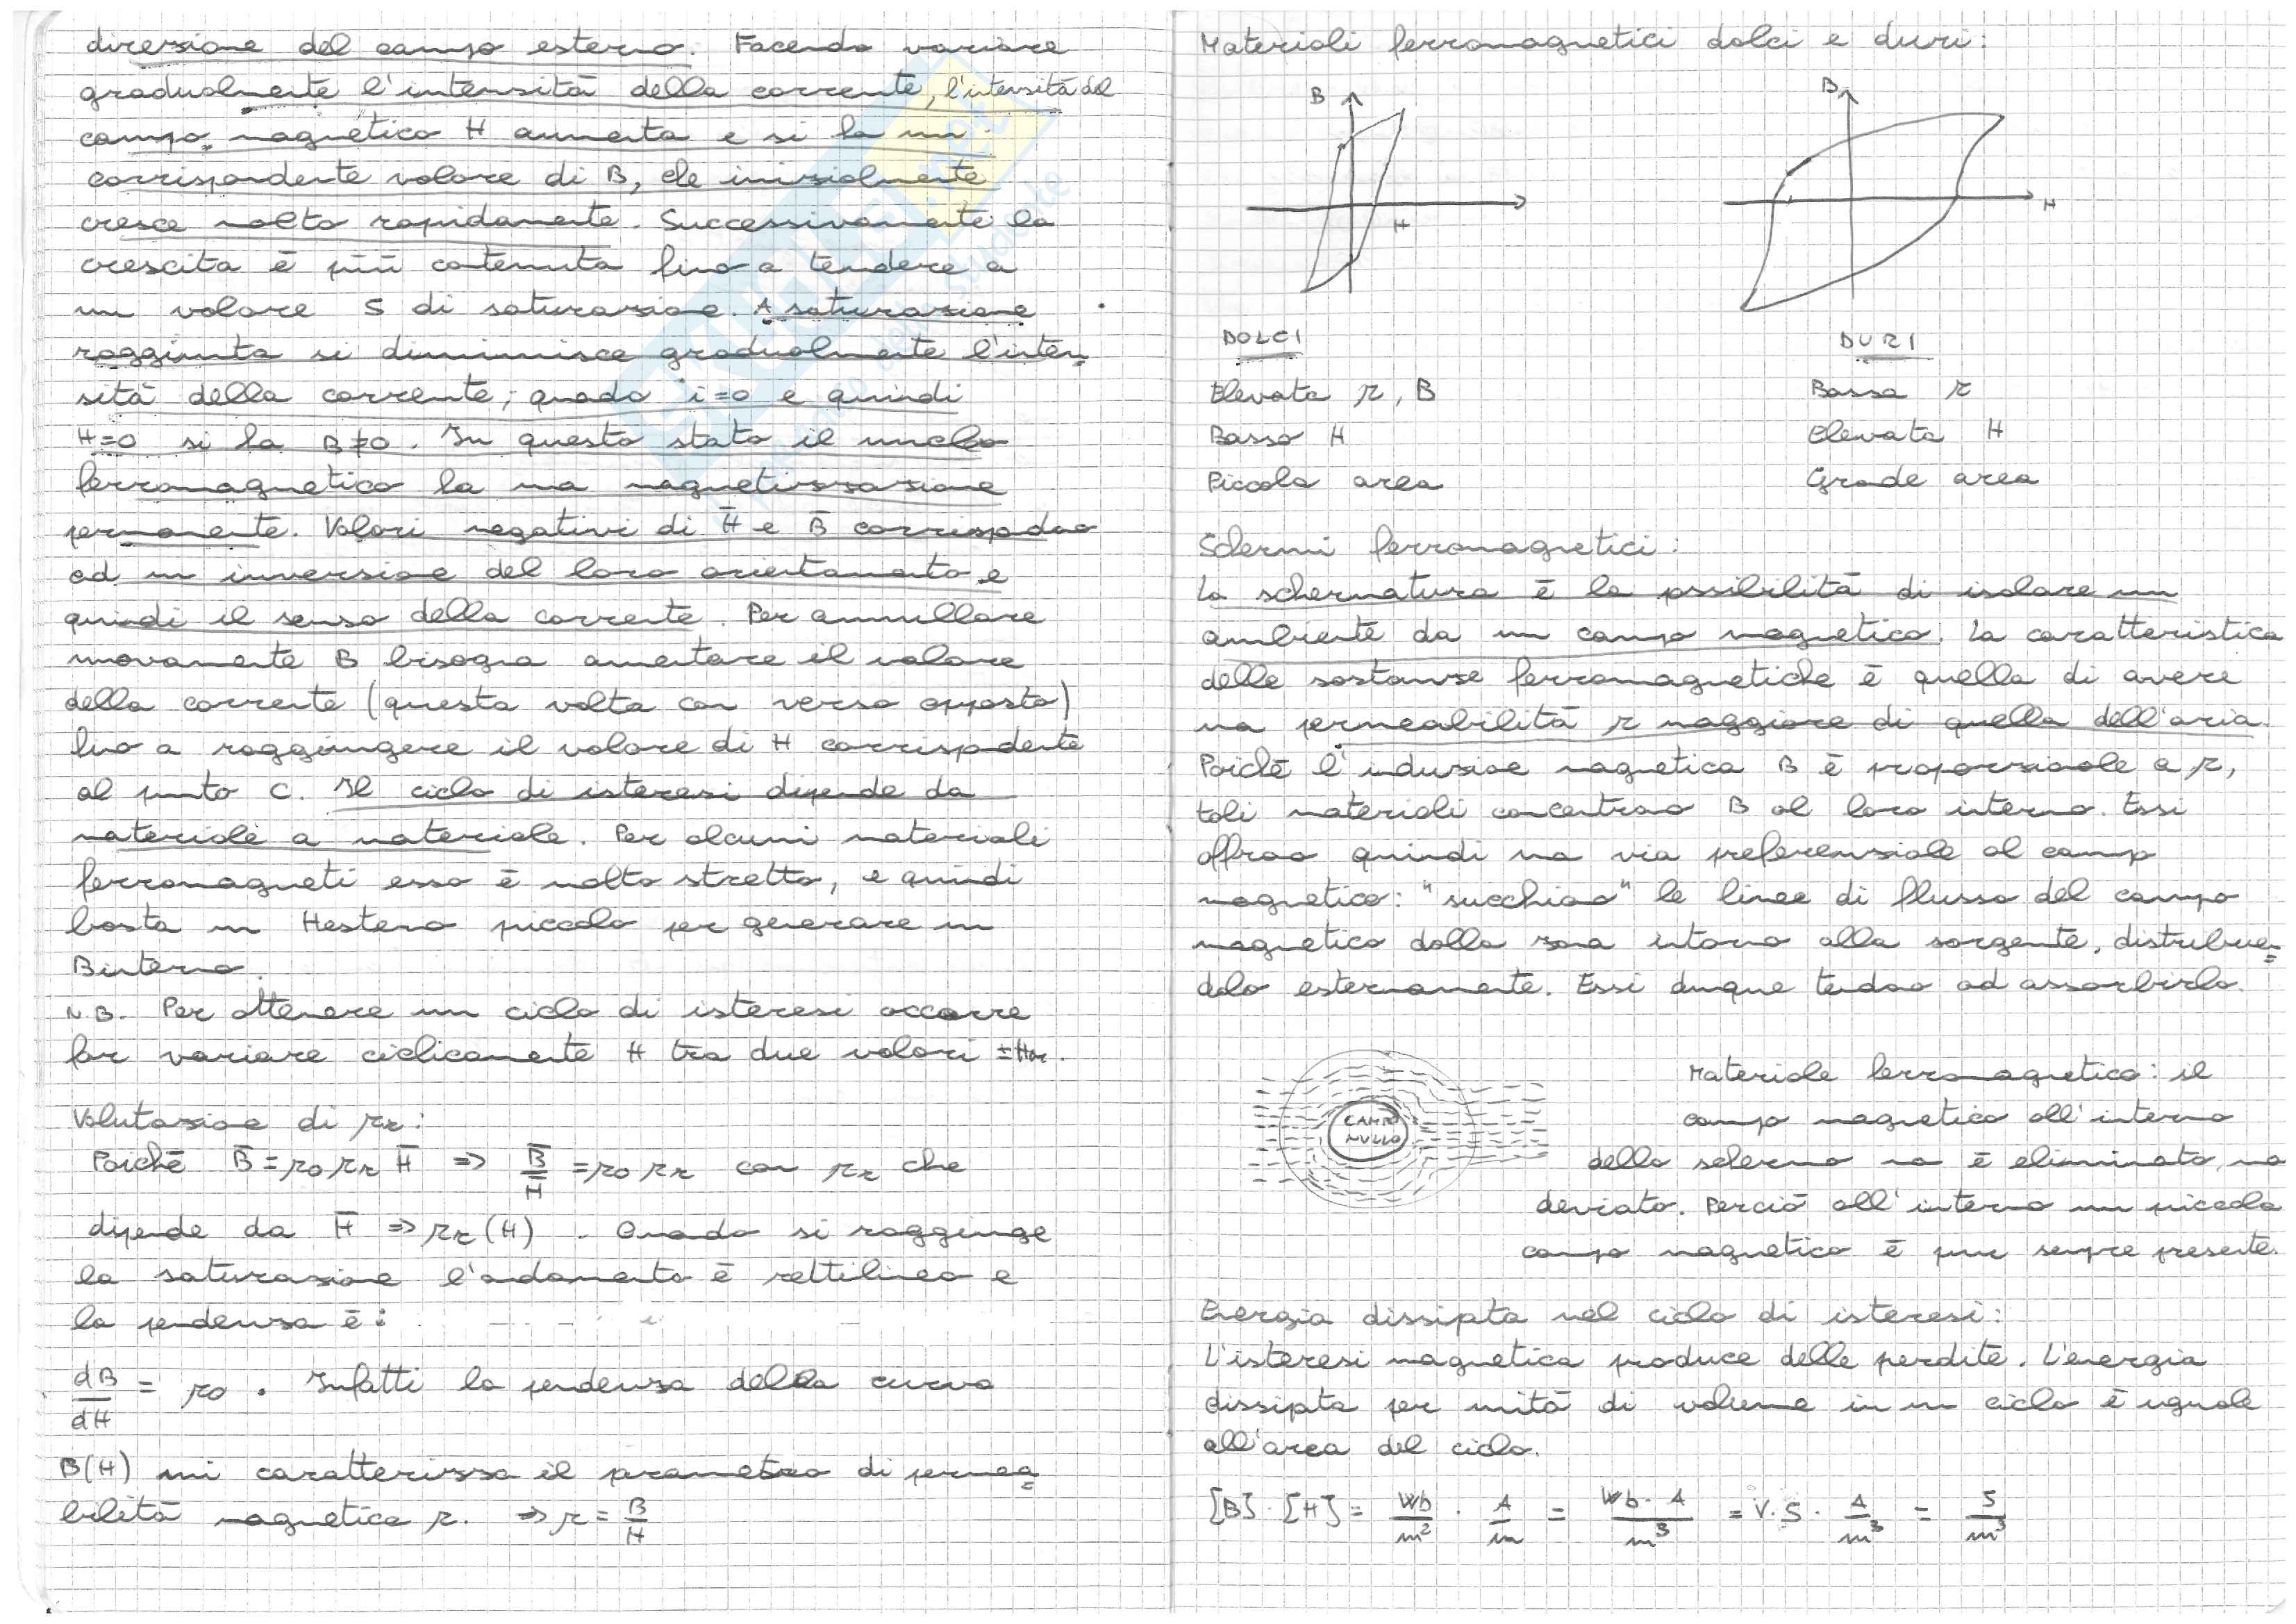 direzione del campo esterno. Facendo variare
gradualmente l'intensità della corrente, l'intensità del
campo magnetico H aumenta e si ha un
corrispondente valore di B, che inizialmente
cresce molto rapidamente. Successivamente la
crescita è più contenuta fino a tendere a
un valore S di saturazione. A saturazione
raggiunta si diminuisce gradualmente l'inten=
sità della corrente; quado i=0 e quindi
H=0 si ha B≠0. In questo stato il nucleo
ferromagnetico ha una magnetizzazione
permanente. Valori negativi di H̄ e B̄ corrispodno
ad un inversione del loro orientamento e
quindi il senso della corrente. Per annullare
nuovamente B bisogna aumentare il valore
della corrente (questa volta con verso opposto)
fino a raggiungere il valore di H corrispodente
al punto C. Il ciclo di isteresi dipende da
materiale a materiale. Per alcuni materiali
ferromagneti esso è molto stretto, e quindi
basta un Hesterno piccolo per generare un
Binterno.
N.B. Per ottenere un ciclo di isteresi occorre
far variare ciclicamente H tra due valori ±Hm.
Valutazione di μr:
Poichè B̄ = μ0 μr H̄ => B̄/H̄ = μ0 μr con μr che
dipende da H̄ => μr(H). Quado si raggiunge
la saturazione l'andamento è rettilineo e
la pendenza è:
dB/dH = μ0. Infatti la pendenza della curva
B(H) mi caratterizza il parametro di permea=
bilità magnetica μ. => μ = B/H
Materiali ferromagnetici dolci e duri:
B
B
H
H
DOLCI
DURI
Elevate μ, B
Bassa μ
Basso H
Elevata H
Piccola area
Grade area
Schermi ferromagnetici:
La schermatura è la possibilità di isolare un
ambiente da un campo magnetico. La caratteristica
delle sostanze ferromagnetiche è quella di avere
una permeabilità μ maggiore di quella dell'aria.
Poichè l'induzione magnetica B è proporzionale a μ,
tali materiali concentrano B al loro interno. Essi
offrono quindi una via preferenziale al campo
magnetico: "succhiano" le linee di flusso del campo
magnetico dalla zona intorno alla sorgente, distribuen=
dolo esternamente. Essi dunque tendono ad assorbirlo.
CAMPO
NULLO
Materiale ferromagnetico: il
campo magnetico all'interno
dello schermo no è eliminato, ma
deviato. Perciò all'interno un piccolo
campo magnetico è pur sempre presente.
Energia dissipata nel ciclo di isteresi:
L'isteresi magnetica produce delle perdite. L'energia
dissipata per unità di volume in un ciclo è uguale
all'area del ciclo.
[B]·[H] = Wb/m² · A/m = Wb·A/m³ = V·S · A/m³ = J/m³